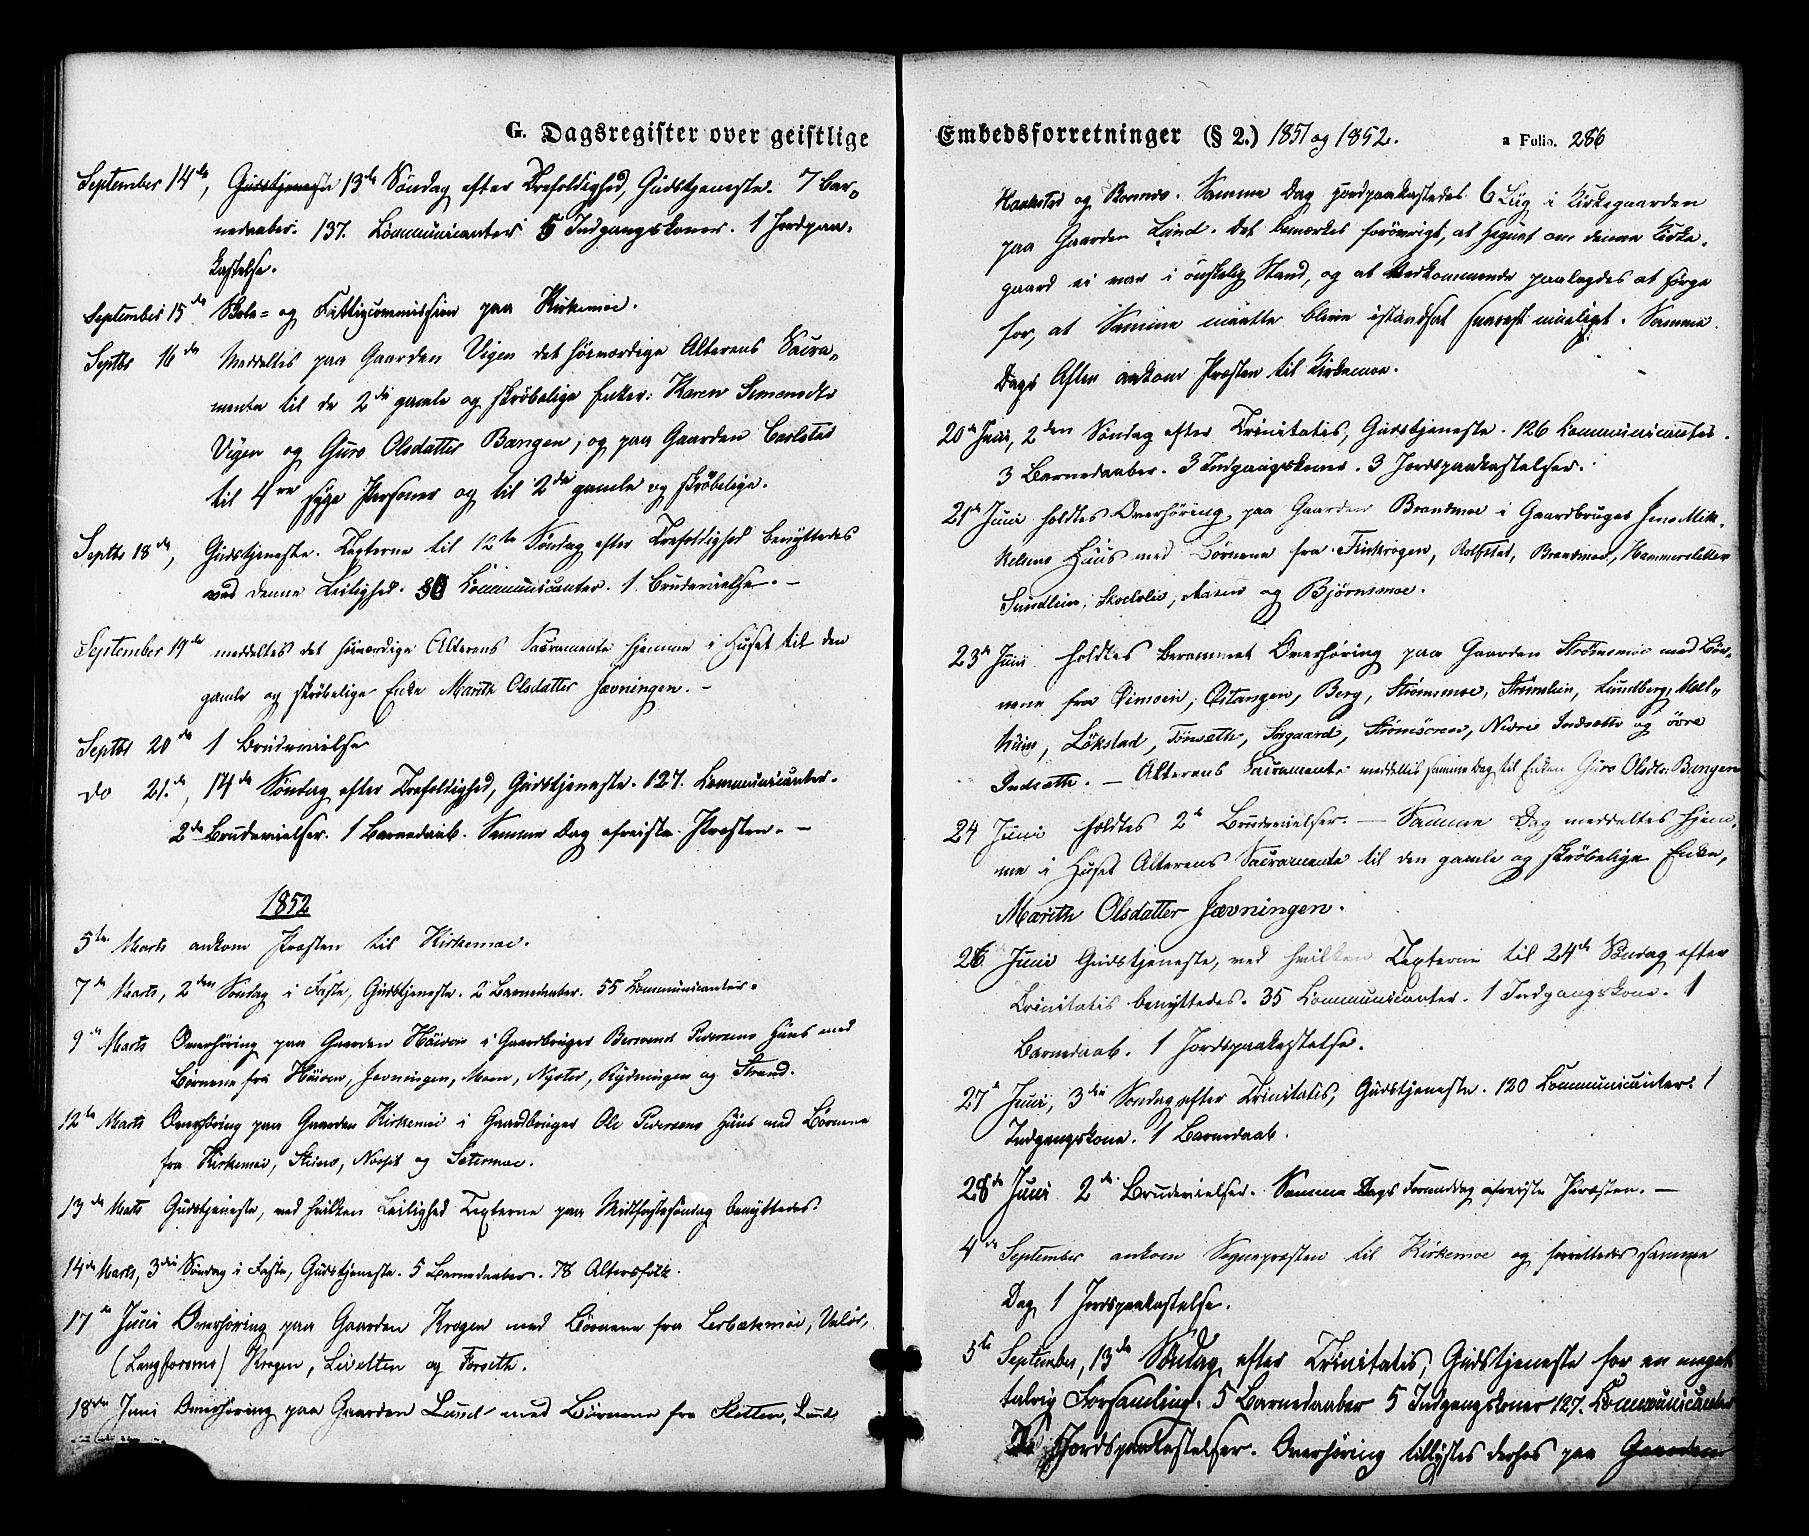 G. Dagsregister over geistlige
September 14de, Gudstjeneste 13de Søndag efter Trefoldighed, Gudstjeneste. 7 Bar-
nedaaber. 137. Communicanter 5 Indgangskoner. 1 Jordpaa-
kastelse.
September 15de Skole- og Fattigcommission paa Kirkemoe.
Septbr 16de Meddeltes paa Gaarden Vigen det høiværdige Alterens Sacra-
mente til de 2de gamle og skrøbelige Enker: Karen Simonsdtr
Vigen og Guro Olsdatter Bangen; og paa Gaarden Carlstad
til 4re syge Personer og til 2de gamle og skrøbelige.
Septbr 18de, Gudstjeneste. Texterne til 12te Søndag efter Trefoldighed benyttedes
ved denne Leilighed. 30 Communicanter. 1 Brudevielse. -
September 19de meddeltes det høiværdige Alterens Sacramente hjemme i Huset til den
gamle og skrøbelige Enke Marith Olsdatter Jævningen. -
Septbr 20de 1 Brudevielse
Do 21de, 14de Søndag efter Trefoldighed, Gudstjeneste. 127. Communicanter.
2de Brudevielser. 1 Barnedaab. Samme Dag afreiste Præsten. -
1852
5te Marts ankom Præsten til Kirkemoe.
7de Marts, 2den Søndag i Faste, Gudstjeneste. 2 Barnedaaber. 55 Communicanter.
9de Marts Overhøring paa Gaarden Høiden i Gaardbruger Bersvend Pedersens Huus med
Børnene fra Høiden, Jævningen, Moen, Nysted, Rydningen og Strand.
12te Marts Overhøring paa Gaarden Kirkemoe i Gaardbruger Ole Pedersens Huus med Børnene
fra Kirkemoe, Steines, og Setermoe.
13de Marts Gudstjeneste, ved hvilken Leilighed Texterne paa Midfastesøndag benyttedes
14de Marts, 3die Søndag i Faste, Gudstjeneste. 5 Barnedaaber. 78 Altersfolk.
17de Juni Overhøring paa Gaarden Krogen med Børnene fra Lerbækmoe,
(Langforsmo) Krogen, og Forseth.
18de Juni Overhøring paa Gaarden Lund med Børnene fra Sletten, Lund,
Embedsforretninger (§ 2.) 1851 og 1852. a Folio. 286
og Bonnes. Samme Dag jordpaakastedes 6 Liig i Kirkegaarden
paa Gaarden Lund. Det bemærkes forøvrigt, at Hegnet om denne Kirke-
gaard ei var i ønskelig Stand, og at Vedkommende paalagdes at sørge
for, at Samme maatte blive istandsat snarest mueligt. Samme
Dags Aften ankom Præsten til Kirkemoe.
20de Juni, 2den Søndag efter Trinitatis, Gudstjeneste. 126 Communicanter.
3 Barnedaaber. 3 Indgangskoner. 3 Jordspaakastelser.
21de Juni holdtes Overhøring paa Gaarden Brandmoe i Gaardbruger Jens Mik-
kelsens Huus med Børnene fra Finkrogen, Rolfstad, Brandmoe, Hammersletten
Sundlien, Skoelvlie, Aasen og Bjørnsmoe.
23de Juni holdtes berammet Overhøring paa Gaarden Strømsmoe med Bør-
nene fra Øimoen, Qvitangen, Berg, Strømsmoe, Strømslien, Lundberg, Mell-
huin, Løkstad, Tønsæth, Sørgaard, Strømsøren, Nedre Indsæth og øvre
Indsæth. - Alterens Sacramente meddeltes samme Dag til Enken Guro Olsdtr. Bangen
24 Juni holdtes 2de Brudevielser. - Samme Dag meddeltes hjem-
me i Huset Alterens Sacramente til den gamle og skrøbelige Enke,
Marith Olsdatter Jævningen.
26 Juni Gudstjeneste, ved hvilken Texterne til 24de Søndag efter
Trinitatis benyttedes. 35 Communicanter. 1 Indgangskone. 1
Barnedaab. 1 Jordspaakastelse.
27de Juni, 3die Søndag efter Trinitatis, Gudstjeneste. 120 Communicanter. 1
Indgangskone. 1 Barnedaab.
28de Juni 2de Brudevielser. Samme Dags Formiddag afreiste Præsten. -
4de September ankom Sognepræsten til Kirkemoe og forrettedes samme
Dag 1 Jordspaakastelse.
5te September, 13de Søndag efter Trinitatis, Gudstjeneste for en meget
talrig Forsamling. 5 Barnedaaber 5 Indgangskoner 127. Communicanter
Jordspaakastelser. Overhøring tillystes derhos paa Gaarden